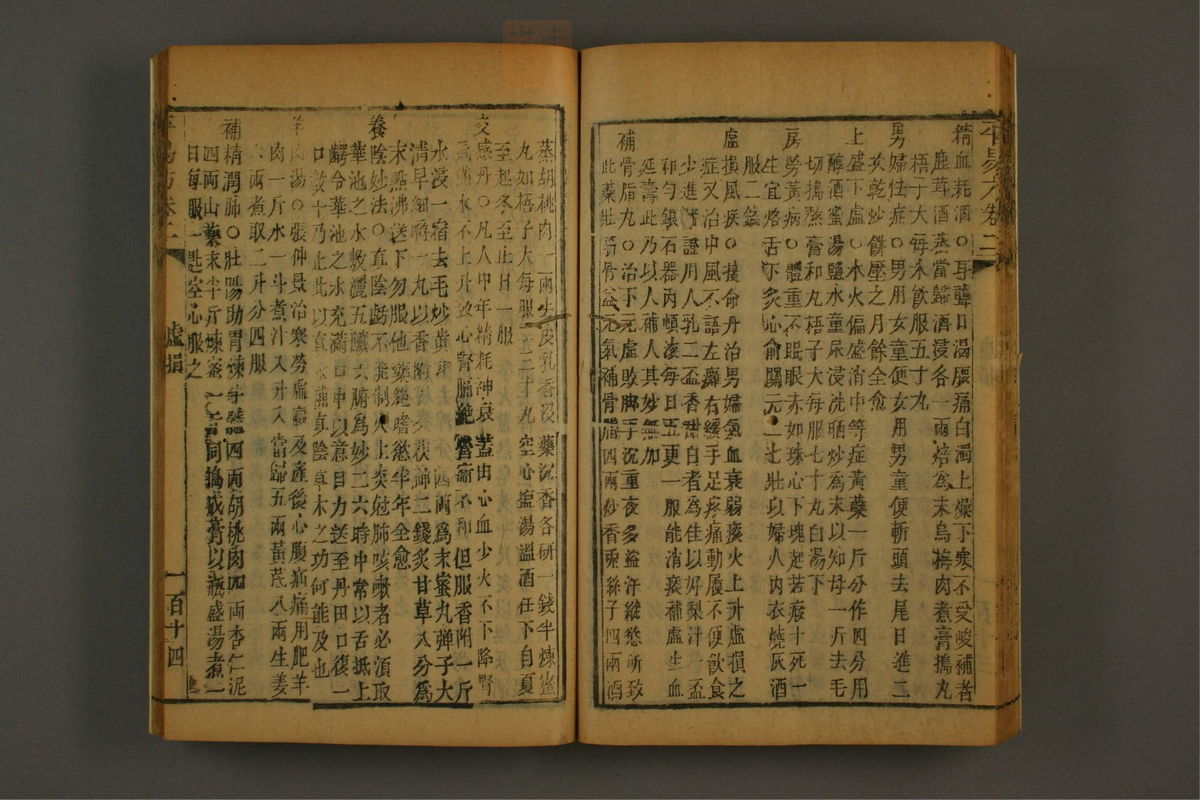 精血耗涸○耳聾口渴腰痛白濁上燥下寒不受峻補者
鹿茸酒蒸當歸酒浸各一兩焙為末烏梅肉煮膏搗丸
梧子大每米飲服五十丸
男婦怯症○男用女童便女用男童便斬頭去尾日進二
次乾炒餅壓之月餘全愈
上盛下虛○水火偏盛消中等症黃蘗一斤分作四分用
醇酒蜜湯鹽水童尿浸洗晒炒為末以知母一斤去毛
切搗熬膏和丸梧子大每服七十丸白湯下
房勞黃病○體重不眠眼赤如珠心下塊起若瘕十死一
生宜烙舌下炙心俞關元二七壯以婦人內衣燒灰酒
服二錢
虛損風疾○接命丹治男婦氣血衰弱痰火上升虛損之
症又治中風不語左癱右緩手足疼痛動履不便飲食
少進等證用人乳二盃香甜白者為佳以好梨汁一盃
和勻銀石器內頓滾每日五更一服能消痰補虛生血
延壽此乃以人補人其妙無加
補骨脂丸○治下元虛敗脚手沉重夜多盜汗縱慾所致
此藥壯筋骨益元氣補骨脂四兩炒香菟絲子四兩酒
蒸胡桃肉一兩去皮乳香沒藥沉香各研一錢半煉蜜
丸如梧子大每服二三十丸空心鹽湯溫酒任下自夏
至起冬至止日一服
交感丹○凡人中年精耗神衰蓋由心血少火不下降腎
氣憊水不上升致心腎隔絕營衛不和但服香附一斤
水浸一宿去毛炒黃茯神四兩為末蜜丸彈子大
清早細嚼一丸以香附茯神二錢炙甘草八分為
末點沸送下勿服他藥絕嗜慾半年全愈
養陰妙法○直陰虧不能制火上炎尅肺咳嗽者必須取
華池之水數灑五臟六腑為妙二六時中常以舌抵上
齶令華池之水充滿口中以意目力送至丹田口復一
口數十乃止此以真水補真陰草木之功何能及也
羊肉湯○張仲景治寒勞虛羸及產後心腹疝痛用肥羊
肉一斤水一斗煮汁八升入當歸五兩黃茋八兩生姜
六兩煮取二升分四服
補精潤肺○壯陽助胃煉牛髓四兩胡桃肉四兩杏仁泥
四兩山藥末半斤煉蜜一斤同搗成膏以瓶盛湯煮一
日每服一匙空心服之
虛損
一百十四